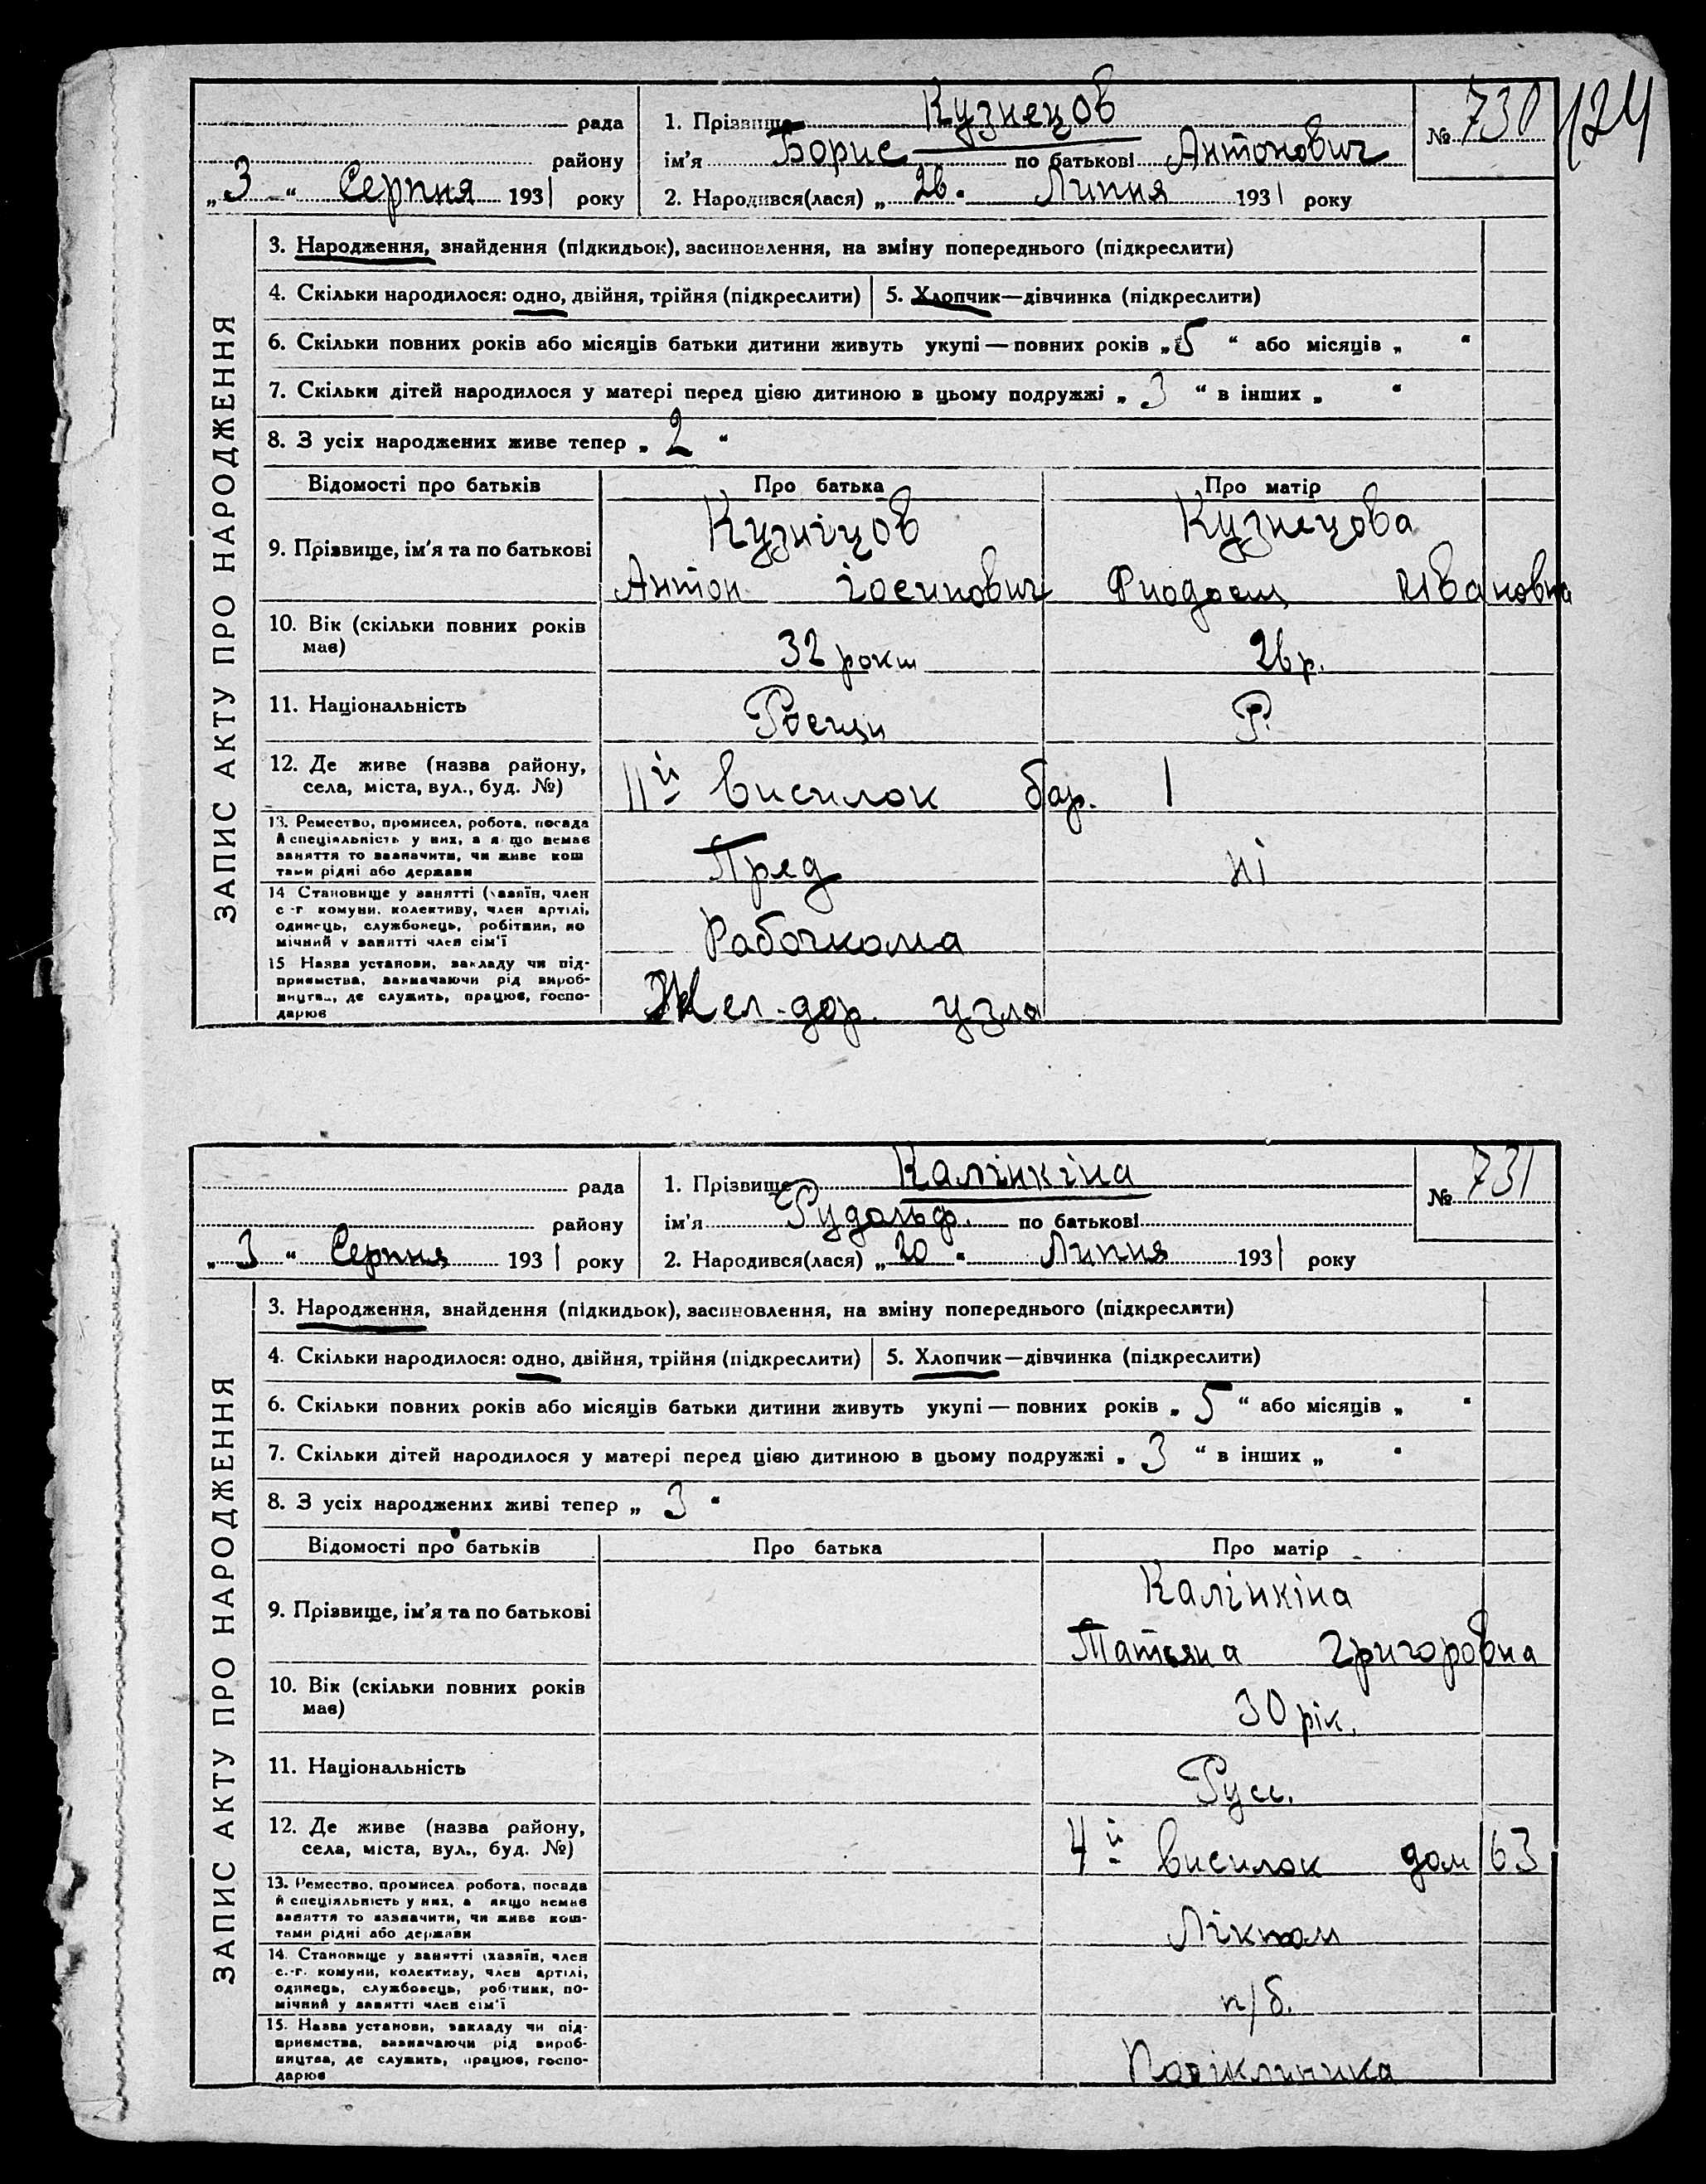 124
рада
району
„3“ Серпня 1931 року
1. Прізвище Кузнецов
ім'я Борис по батькові Антонович
2. Народився(лася) „26“ Липня 1931 року
№ 730
ЗАПИС АКТУ ПРО НАРОДЖЕННЯ
3. Народження, знайдення (підкидьок), засиновлення, на зміну попереднього (підкреслити)
4. Скільки народилося: одно, двійня, трійня (підкреслити)
5. Хлопчик—дівчинка (підкреслити)
6. Скільки повних років або місяців батьки дитини живуть укупі — повних років „5“ або місяців „ “
7. Скільки дітей народилося у матері перед цією дитиною в цьому подружжі „3“ в інших „ “
8. З усіх народжених живе тепер „2“
Відомості про батьків Про батька Про матір
9. Прізвище, ім'я та по батькові
Кузніцов
Антон Іосипович
Кузнецова
Ивановна
10. Вік (скільки повних років
має)
32 роки
26 р.
11. Національність
Р.
12. Де живе (назва району,
села, міста, вул., буд. №)
11й висилок бар. 1
13. Ремество, промисел, робота, посада
й спеціяльність у них, а якщо немає
заняття то зазначити, чи живе кош
тами рідні або держави
Пред
ні
14 Становище у занятті (хазяїн, член
с.-г. комуни, колективу, член артілі,
одинець, службовець, робітник, по
мічний у занятті член сім'ї
Рабочкома
15 Назва установи, закладу чи під-
приємства, зазначаючи рід вироб-
ництва, де служить, працює, госпо-
дарює
Жел-дор. узла
рада
району
„3“ Серпня 1931 року
1. Прізвище Калінкіна
ім'я Рудольф. по батькові
2. Народився(лася) „20“ Липня 1931 року
№ 731
ЗАПИС АКТУ ПРО НАРОДЖЕННЯ
3. Народження, знайдення (підкидьок), засиновлення, на зміну попереднього (підкреслити)
4. Скільки народилося: одно, двійня, трійня (підкреслити)
5. Хлопчик—дівчинка (підкреслити)
6. Скільки повних років або місяців батьки дитини живуть укупі — повних років „5“ або місяців „ “
7. Скільки дітей народилося у матері перед цією дитиною в цьому подружжі „3“ в інших „ “
8. З усіх народжених живі тепер „3“
Відомості про батьків Про батька Про матір
9. Прізвище, ім'я та по батькові
Калінкіна
Татьяна Григоровна
10. Вік (скільки повних років
має)
30 рік.
11. Національність
Русс.
12. Де живе (назва району,
села, міста, вул., буд. №)
4й висилок дом 63
13. Ремество, промисел, робота, посада
й спеціяльність у них, а якщо немає
заняття то зазначити, чи живе кош-
тами рідні або держави
Лікпом
14. Становище у занятті (хазяїн, член
с.-г. комуни, колективу, член артілі,
одинець, службовець, робітник, по-
мічний у занятті член сім'ї
п/б.
15. Назва установи, закладу чи під-
приємства, зазначаючи рід вироб-
ництва, де служить, працює, госпо-
дарює
Поліклиника